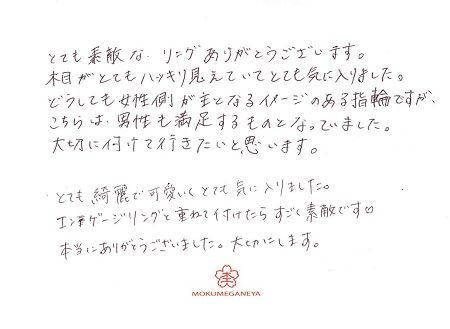 とても素敵なリングありがとうございます。
木目がとてもハッキリ見えていてとても気に入りました。
どうしても女性側が主となるイメージのある指輪ですが、
こちらは、男性も満足するものとなっていました。
大切に付けて行きたいと思います。
とても綺麗で可愛いくとても気に入りました。
エンゲージリングと重ねて付けたらすごく素敵です♡
本当にありがとうございました。大切にします。
MOKUMEGANEYA